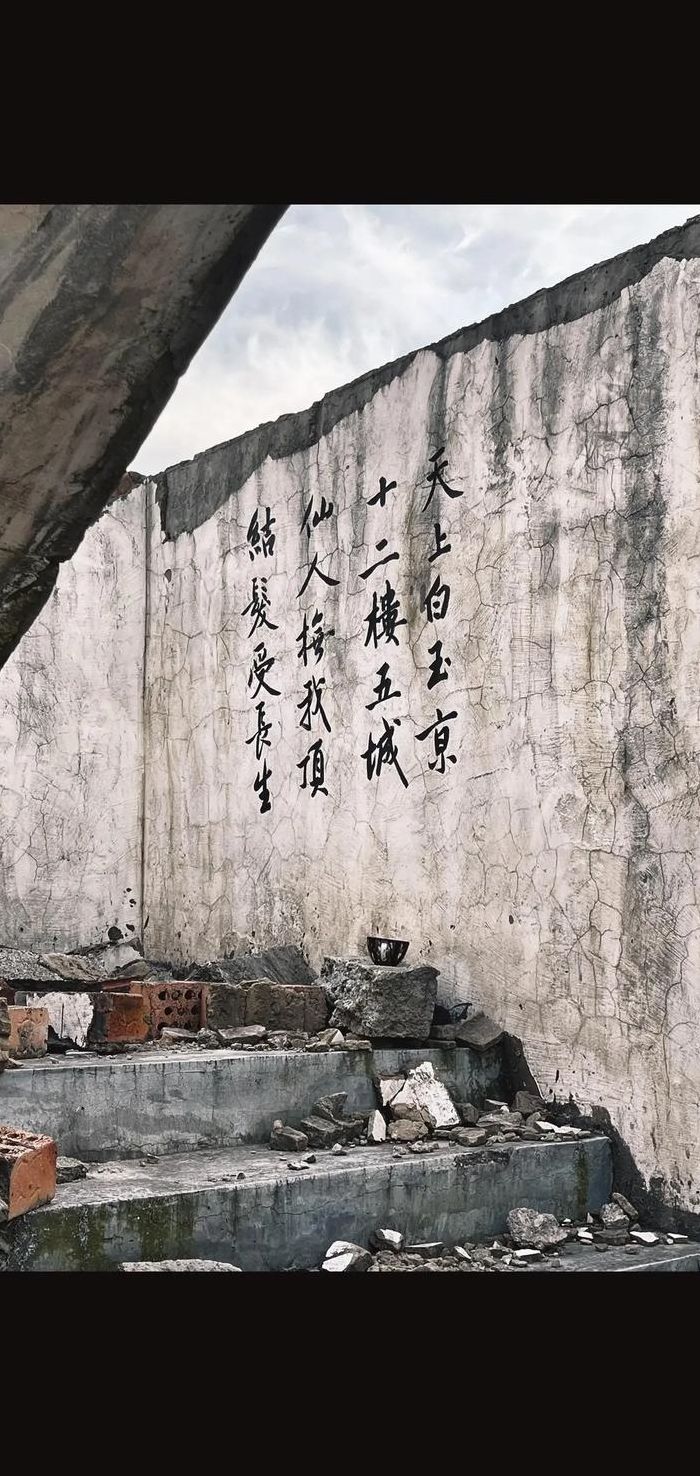 天上白玉京
十二樓五城
仙人撫我頂
結髮受長生